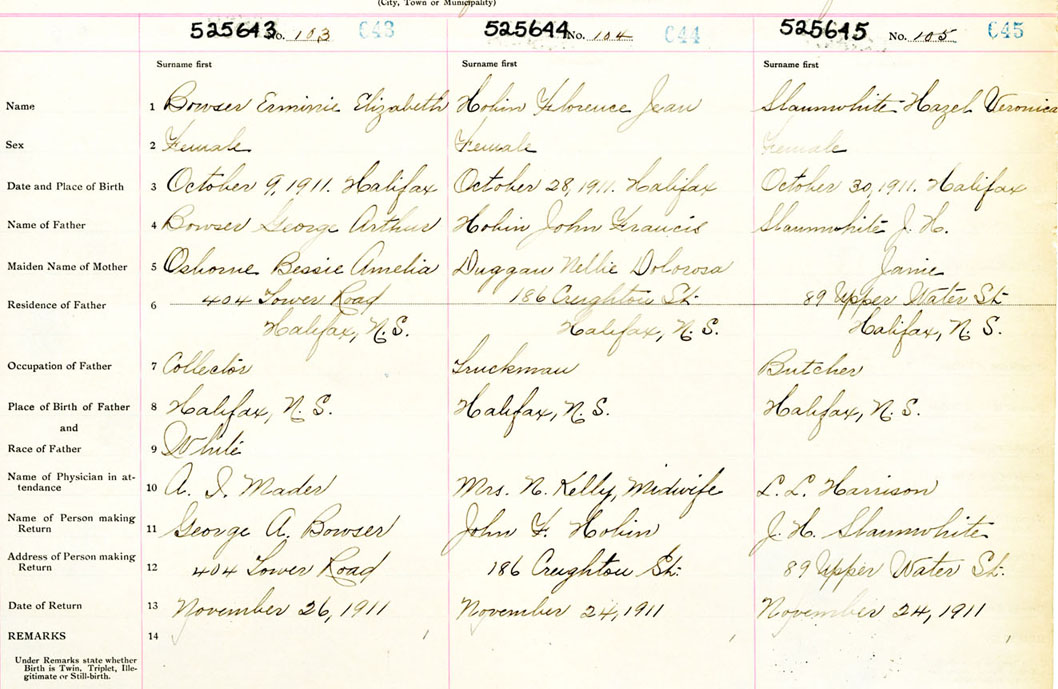 (City, Town or Municipality)
525643 No. 103 C43 525644 No. 104 C44 525645 No. 105 C45
Surname first Surname first Surname first
Name 1 Bowser Erminie Elizabeth Hobin Florence Jean Slaunwhite Hazel Veronica
Sex 2 Female Female Female
Date and Place of Birth 3 October 9, 1911. Halifax October 28, 1911. Halifax October 30, 1911. Halifax
Name of Father 4 Bowser George Arthur Hobin John Francis Slaunwhite J. H.
Maiden Name of Mother 5 Osborne Bessie Amelia Duggan Nellie Dolorosa Janie
Residence of Father 6 404 Tower Road 186 Creighton St. 89 Upper Water St.
Halifax, N.S. Halifax, N.S. Halifax, N.S.
Occupation of Father 7 Collector Truckman Butcher
Place of Birth of Father 8 Halifax, N.S. Halifax, N.S. Halifax, N.S.
and
Race of Father 9 White
Name of Physician in at-
tendance 10 A. I. Mader Mrs. N. Kelly, Midwife L. L. Harrison
Name of Person making
Return 11 George A. Bowser John F. Hobin J. H. Slaunwhite
Address of Person making
Return 12 404 Tower Road 186 Creighton St. 89 Upper Water St.
Date of Return 13 November 26, 1911 November 24, 1911 November 24, 1911
REMARKS 14
Under Remarks state whether
Birth is Twin, Triplet, Ille-
gitimate or Still-birth.